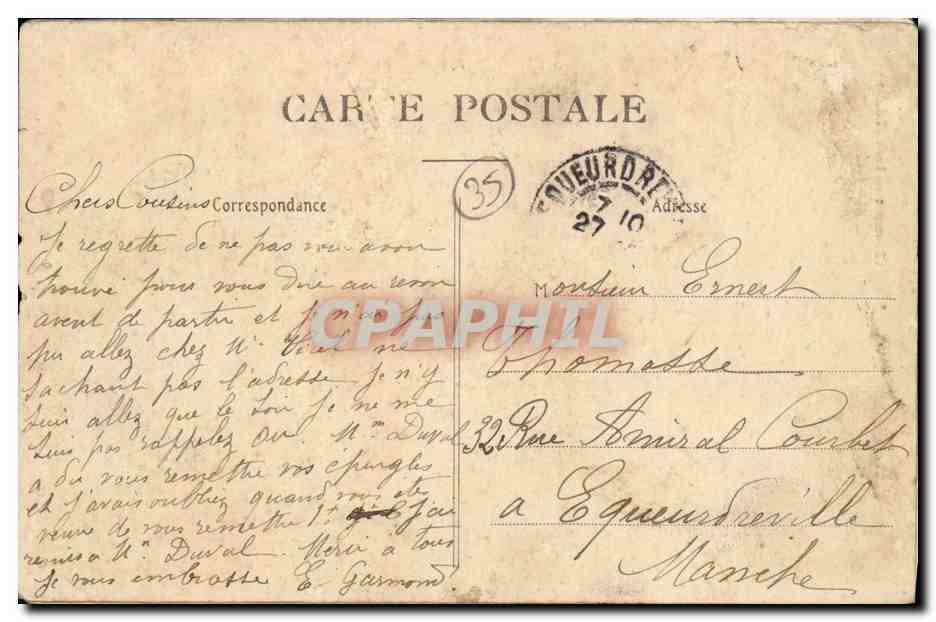 CARTE POSTALE
35
EQUEURDRE
7 10
27
Correspondance
Adresse
Chers Cousins
Je regrette de ne pas vous avoir
trouvé pour vous dire au revoir
avent de partir et je n'ai pas
pu allez chez Mr Vitel ne
sachant pas l'adresse je n'y
suis allez que le soir je ne me
suis pas rappelez ou. Mme Duval
a du vous remettre vos épingles
et j'avais oubliez quand vous ete
venue de vous remettre 1f j'ai
remis a Me Duval. Merci à tous
Je vous embrasse E Garmond
Monsieur Ernest
Thomasse
32 Rue Amiral Courbet
a Equeurdreville
Manche
CPAPHIL